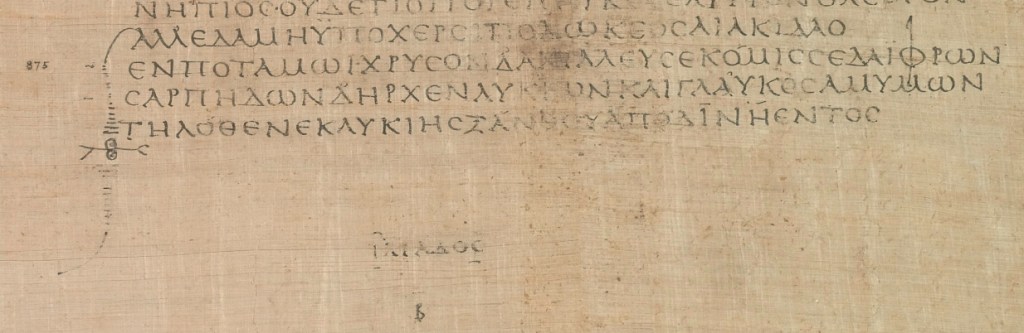 ΝΗΠΙΟϹΟΥΔΕΤΙΟΙΤΟΓΕΠΗΡΚΕϹΕΛΥΓΡΟΝΟΛΕΘΡΟΝ
ΑΛΛΕΔΑΜΗΫΠΟΧΕΡϹΙΠΟΔΩΚΕΟϹΑΙΑΚΙΔΑΟ
875 ΕΝΠΟΤΑΜΩΙΧΡΥϹΟΝΔΑΧΙΛΛΕΥϹΕΚΟΜΙϹϹΕΔΑΙΦΡΩΝ
ϹΑΡΠΗΔΩΝΔΗΡΧΕΝΛΥΚΙΩΝΚΑΙΓΛΑΥΚΟϹΑΜΥΜΩΝ
ΤΗΛΟΘΕΝΕΚΛΥΚΙΗϹΞΑΝΘΟΥΑΠΟΔΙΝΗΕΝΤΟϹ
ΙΛΙΑΔΟϹ
Β